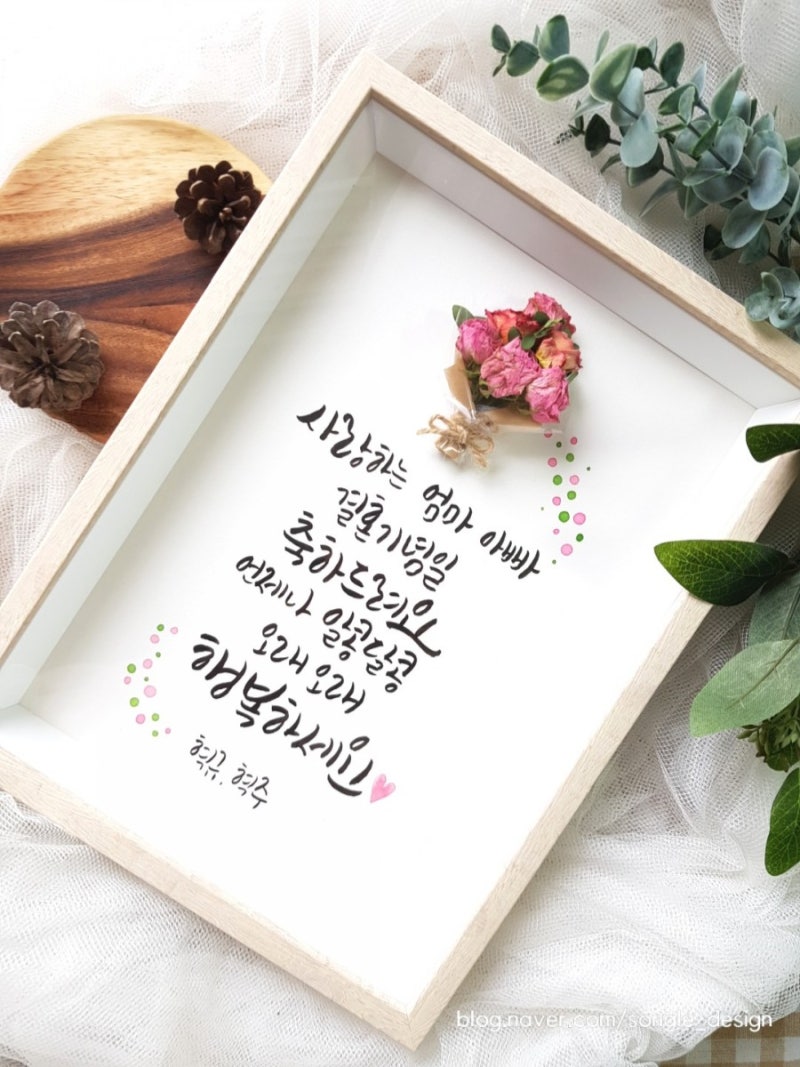 사랑하는 엄마 아빠
결혼기념일
축하드려요
언제나 알콩달콩
오래 오래
행복하세요
혁규, 혁주
blog.naver.com/songle-design